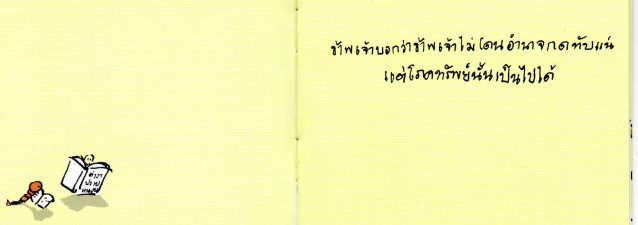 ข้าพเจ้าบอกว่าข้าพเจ้าไม่โดนอำนาจกดทับแน่
แต่โรคทรัพย์นั้นเป็นไปได้
ตำรา